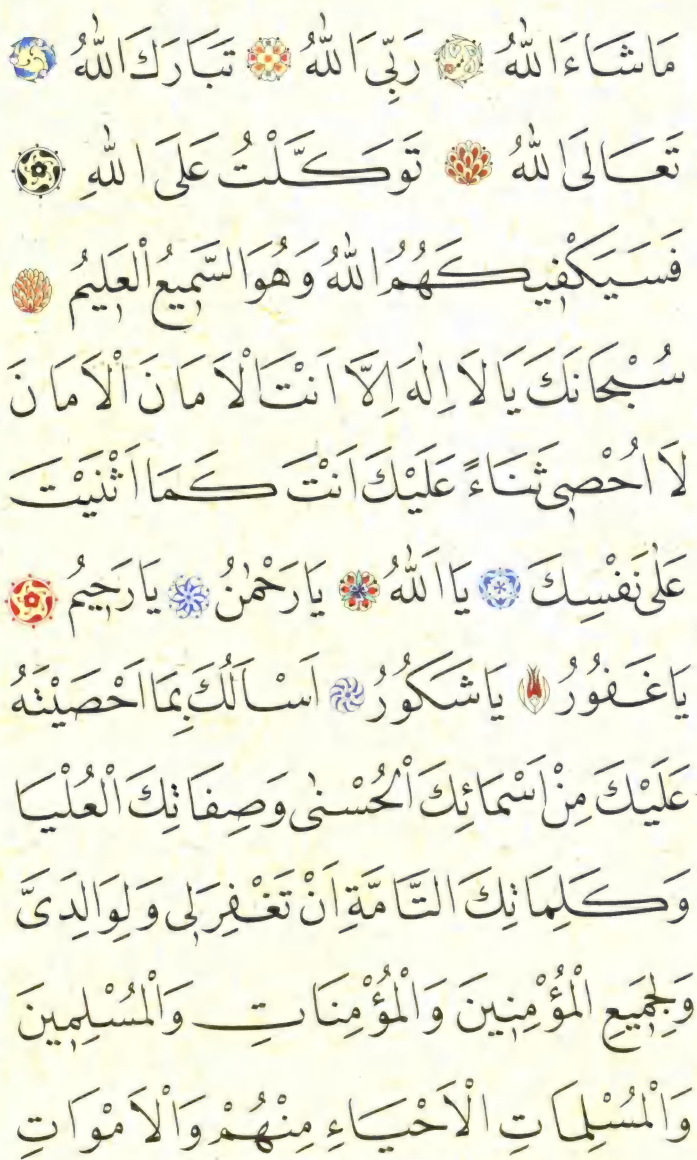 مَاشَاءَ اللّٰهُ رَبِّىَ اللّٰهُ تَبَارَكَ اللّٰهُ
تَعَالَى اللّٰهُ تَوَكَّلْتُ عَلَى اللّٰهِ
فَسَيَكْفِيكَهُمُ اللّٰهُ وَهُوَ السَّمِيعُ الْعَلِيمُ
سُبْحَانَكَ يَا لَا اِلٰهَ اِلَّا اَنْتَ الْاَمَانَ الْاَمَانَ
لَا اُحْصِى ثَنَاءً عَلَيْكَ اَنْتَ كَمَا اَثْنَيْتَ
عَلٰى نَفْسِكَ يَا اَللّٰهُ يَا رَحْمٰنُ يَا رَحِيمُ
يَا غَفُورُ يَا شَكُورُ اَسْاَلُكَ بِمَا اَحْصَيْتَهُ
عَلَيْكَ مِنْ اَسْمَائِكَ الْحُسْنٰى وَصِفَاتِكَ الْعُلْيَا
وَكَلِمَاتِكَ التَّامَّةِ اَنْ تَغْفِرَلِى وَلِوَالِدَىَّ
وَلِجَمِيعِ الْمُؤْمِنِينَ وَالْمُؤْمِنَاتِ وَالْمُسْلِمِينَ
وَالْمُسْلِمَاتِ الْاَحْيَاءِ مِنْهُمْ وَالْاَمْوَاتِ